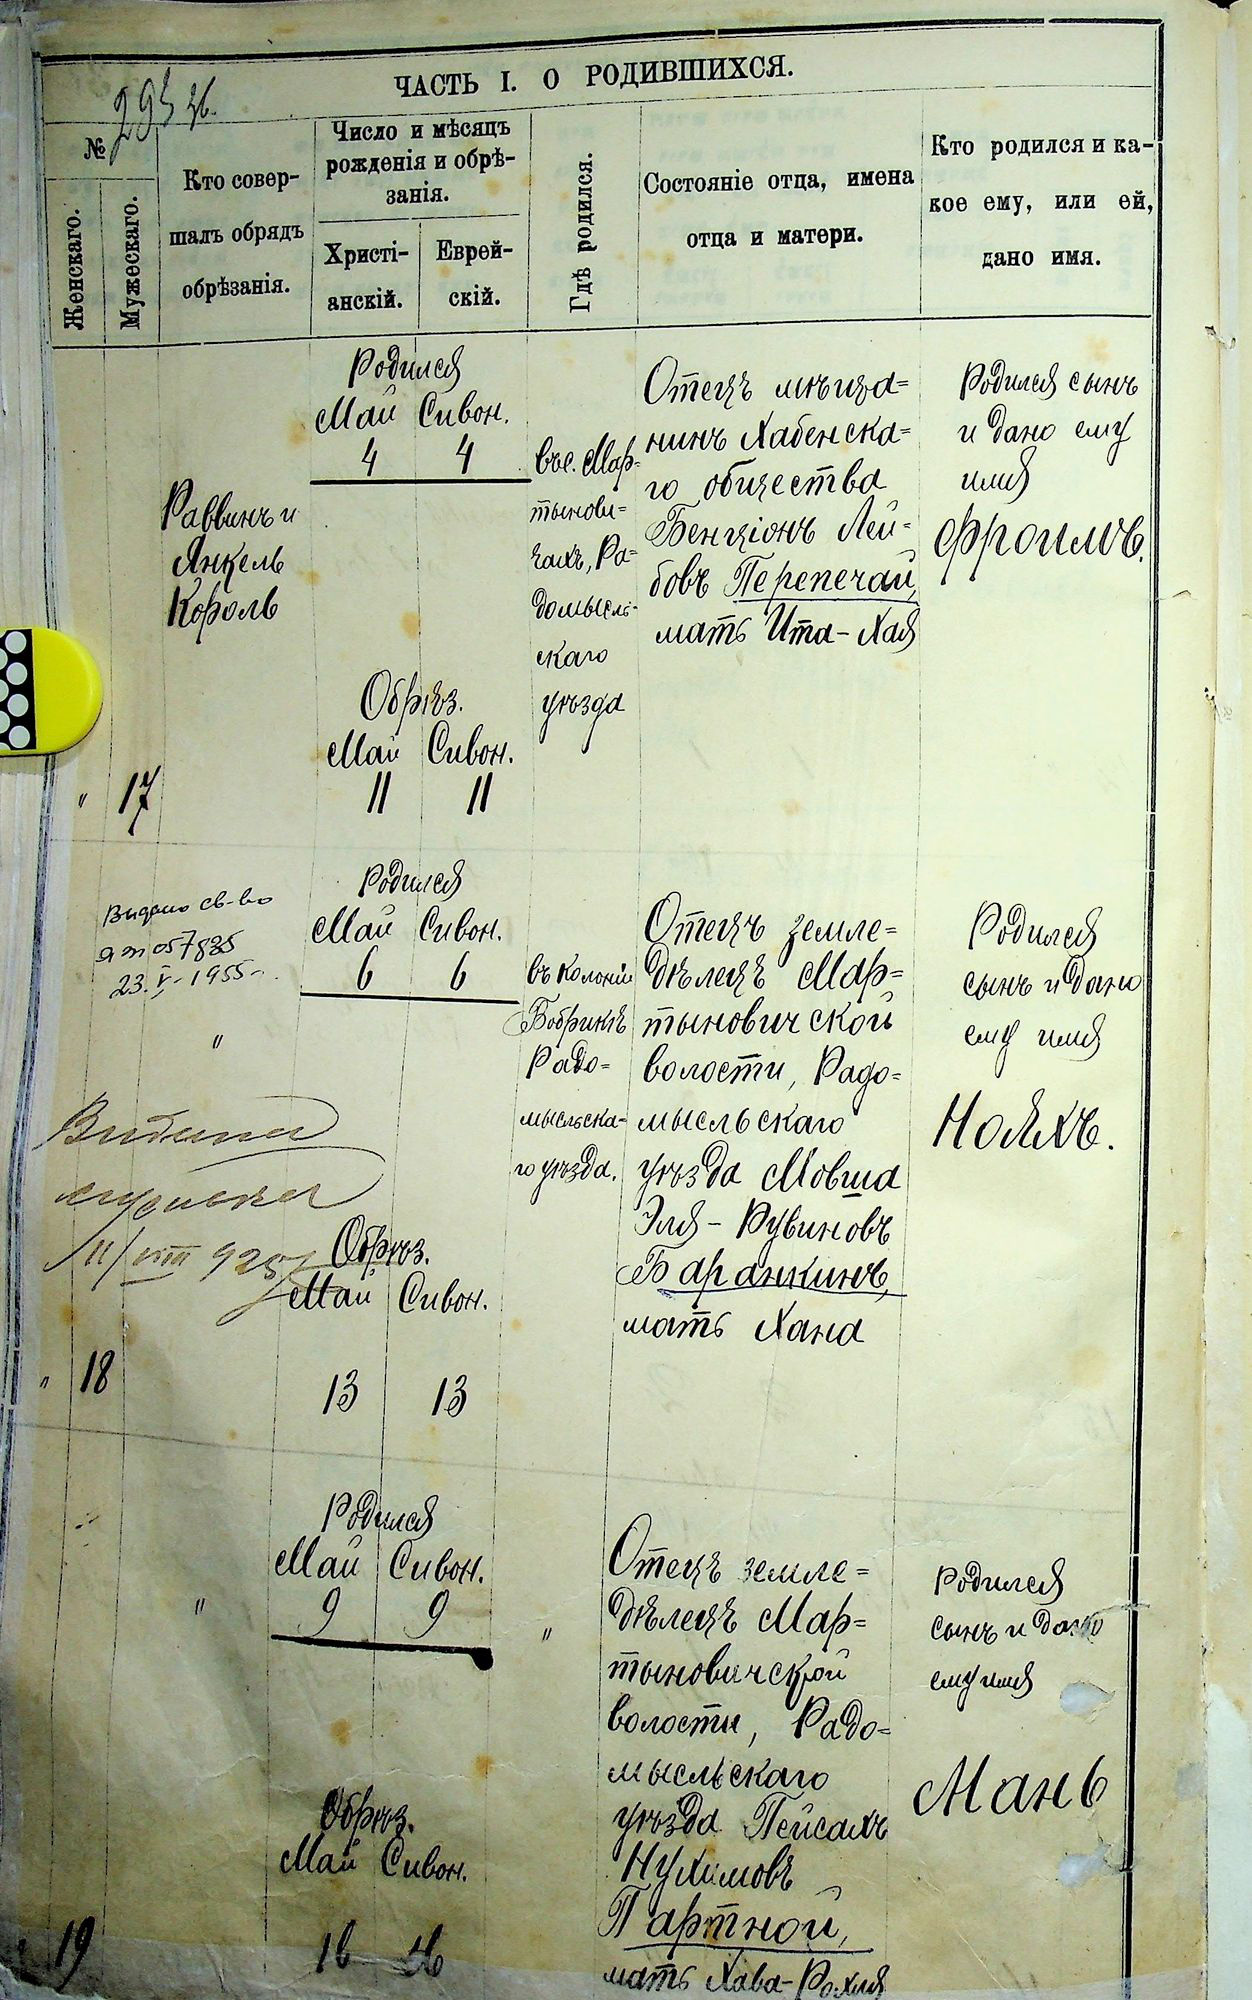 ЧАСТЬ I. О РОДИВШИХСЯ.
№
Женскаго.
Мужескаго.
Кто совер-
шалъ обрядъ
обрѣзанія.
Число и мѣсяцъ
рожденія и обрѣ-
занія.
Христі-
анскій.
Еврей-
скій.
Гдѣ родился.
Состояніе отца, имена
отца и матери.
Кто родился и ка-
кое ему, или ей,
дано имя.
" 17
Раввинъ и
Янкель
Король
Родился
Май Сивон.
4 4
Обрѣз.
Май Сивон.
11 11
въ с. Мар-
тынови-
чахъ, Ра-
домысль-
скаго
уѣзда
Отецъ мѣща=
нинъ Хабенска=
го общества
Бенціонъ Лей-
бовъ Перепечай,
мать Ита-Хая
Родился сынъ
и дано ему
имя
Фроимъ.
Видано св-во
ЯЯ 057835
23.V-1955-
"
Видана
11/VIII 925
" 18
Родился
Май Сивон.
6 6
Обрѣз.
Май Сивон.
13 13
въ колоніи
Бобрикѣ
Радо=
мысльска-
го уѣзда.
Отецъ земле=
дѣлецъ Мар=
тыновичской
волости, Радо=
мысльскаго
уѣзда Мовша
Эля-Рувиновъ
Баранкинъ,
мать Хана
Родился
сынъ и дано
ему имя
Нояхъ.
"
19
Родился
Май Сивон.
9 9
Обрѣз.
Май Сивон.
16 16
"
Отецъ земле=
дѣлецъ Мар=
тыновичской
волости, Радо=
мысльскаго
уѣзда Пейсахъ
Нухимовъ
Партной,
мать Хава-Рохля
Родился
сынъ и дано
ему имя
Мань